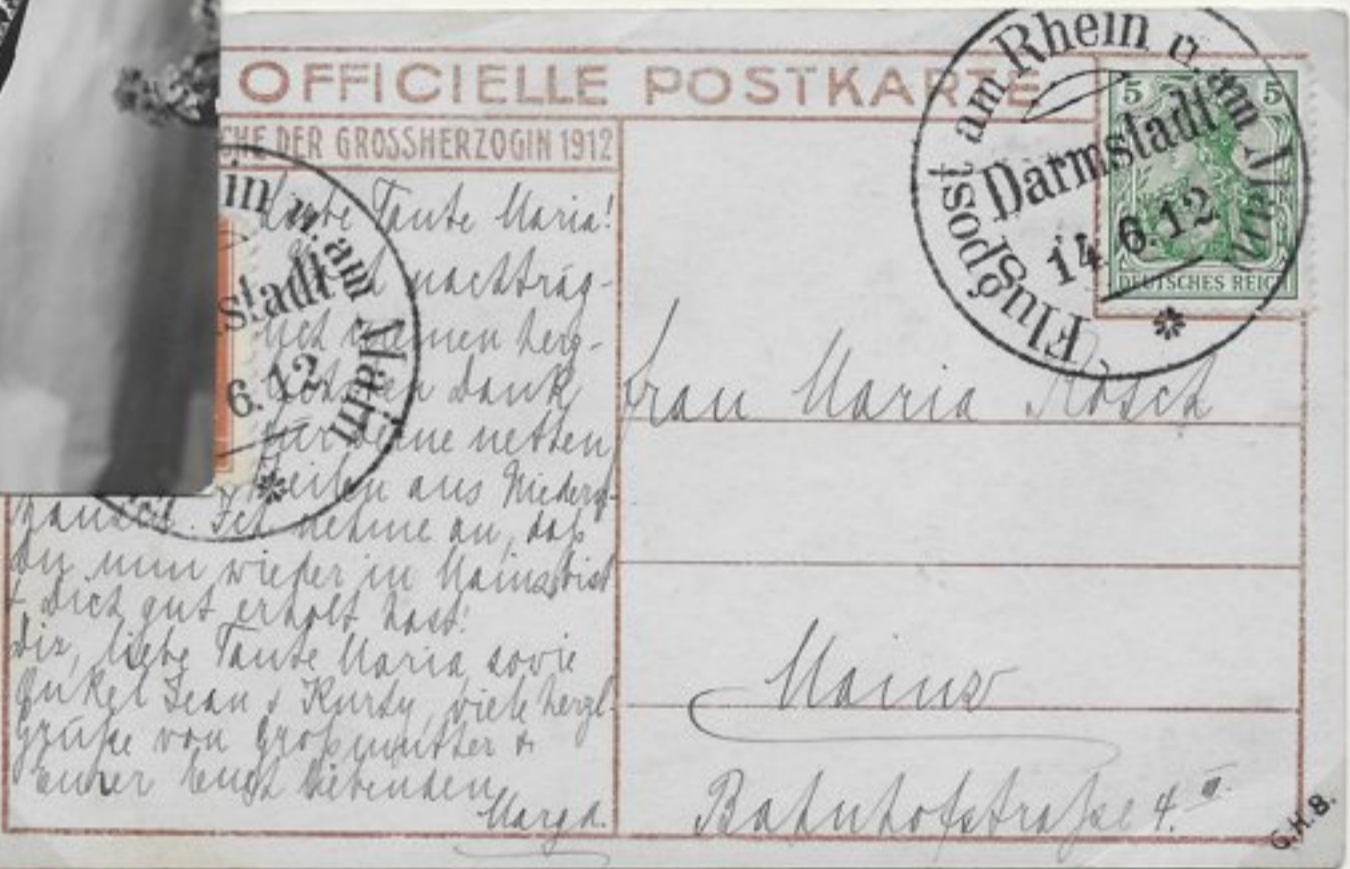 OFFICIELLE POSTKARTE
CHE DER GROSSHERZOGIN 1912
Flugpost am Rhein u. am Main
Darmstadt
14.6.12
5 5
DEUTSCHES REICH
in u. am Main
stadt
6.12
Liebe Tante Maria!
nachträg-
lich meinen herz-
lichsten Dank
für deine netten
Zeilen aus
Ich nehme an, daß
Du nun wieder in Mainz bist
+ Dich gut erholt hast!
Dir, liebe Tante Maria sowie
Onkel Jean & Kurty, viele herzl.
Grüße von Großmutter &
Eurer Euch liebenden
Marga.
Frau Maria Rösch
Mainz
Bahnhofstraße 4. II.
G.H.B.